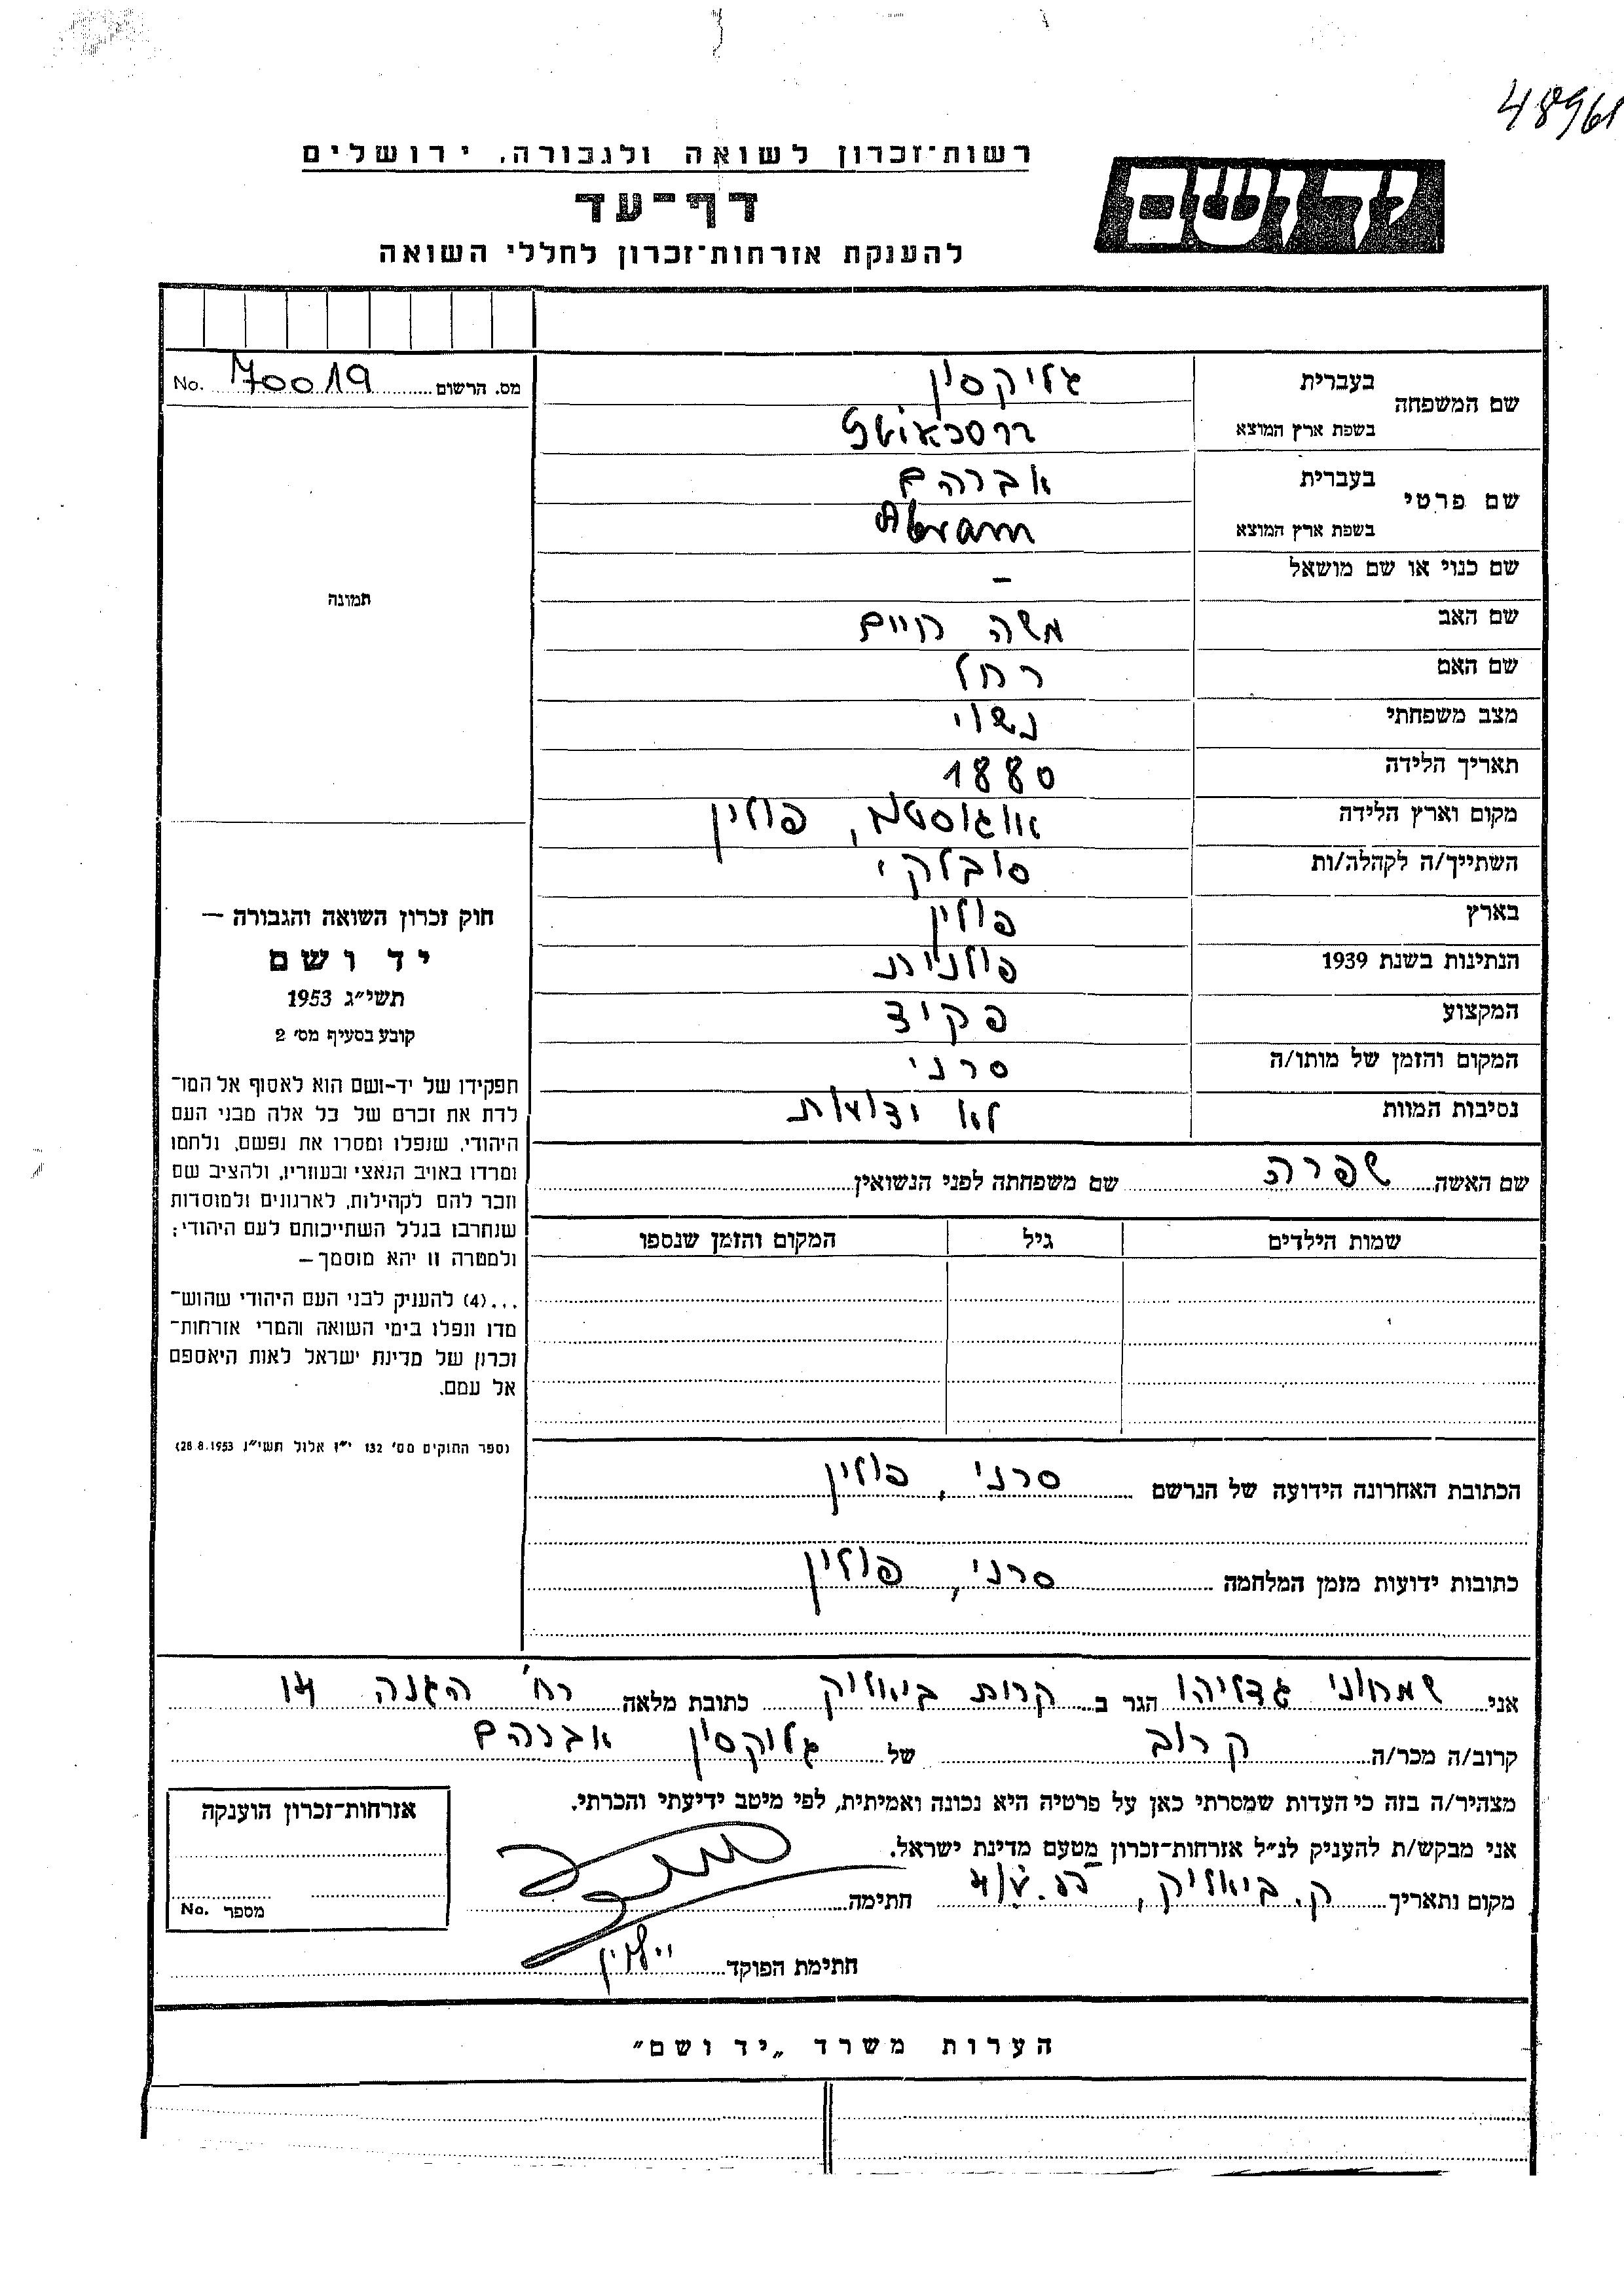 48961
רשות־זכרון לשואה ולגבורה, ירושלים
יד ושם
דף־עד
להענקת אזרחות־זכרון לחללי השואה
מס. הרשום 70019 No.
שם המשפחה בעברית גליקסין
בשפת ארץ המוצא
שם פרטי בעברית אברהם
בשפת ארץ המוצא Abram
שם כנוי או שם מושאל –
שם האב משה חיים
שם האם רחל
מצב משפחתי נשוי
תאריך הלידה 1880
מקום וארץ הלידה פולין
השתייך/ה לקהלה/ות סובלקי
בארץ פולין
הנתינות בשנת 1939 פולנית
המקצוע פקיד
המקום והזמן של מותו/ה סרני
נסיבות המוות לא ידועות
שם האשה שפרה שם משפחתה לפני הנשואין
שמות הילדים גיל המקום והזמן שנספו
הכתובת האחרונה הידועה של הנרשם סרני, פולין
כתובות ידועות מזמן המלחמה סרני, פולין
תמונה
חוק זכרון השואה והגבורה —
יד ושם
תשי״ג 1953
קובע בסעיף מס׳ 2
תפקידו של יד-ושם הוא לאסוף אל המו־
לדת את זכרם של כל אלה מבני העם
היהודי, שנפלו ומסרו את נפשם, נלחמו
ומרדו באויב הנאצי ובעוזריו, ולהציב שם
וזכר להם לקהילות, לארגונים ולמוסדות
שנחרבו בגלל השתייכותם לעם היהודי;
ולמטרה זו יהא מוסמך —
...(4) להעניק לבני העם היהודי שהוש־
מדו ונפלו בימי השואה והמרי אזרחות־
זכרון של מדינת ישראל לאות היאספם
אל עמם.
(ספר החוקים מס׳ 132 י״ז אלול תשי״ג 28.8.1953)
אני שמחוני גדליהו הגר ב קרית ביאליק כתובת מלאה רח׳ הגנה 14
קרוב/ה מכר/ה קרוב של גליקסין אברהם
מצהיר/ה בזה כי העדות שמסרתי כאן על פרטיה היא נכונה ואמיתית, לפי מיטב ידיעתי והכרתי.
אני מבקש/ת להעניק לנ״ל אזרחות־זכרון מטעם מדינת ישראל.
מקום ותאריך ק. ביאליק, חתימה
חתימת הפוקד
אזרחות־זכרון הוענקה
מספר No.
הערות משרד „יד ושם״